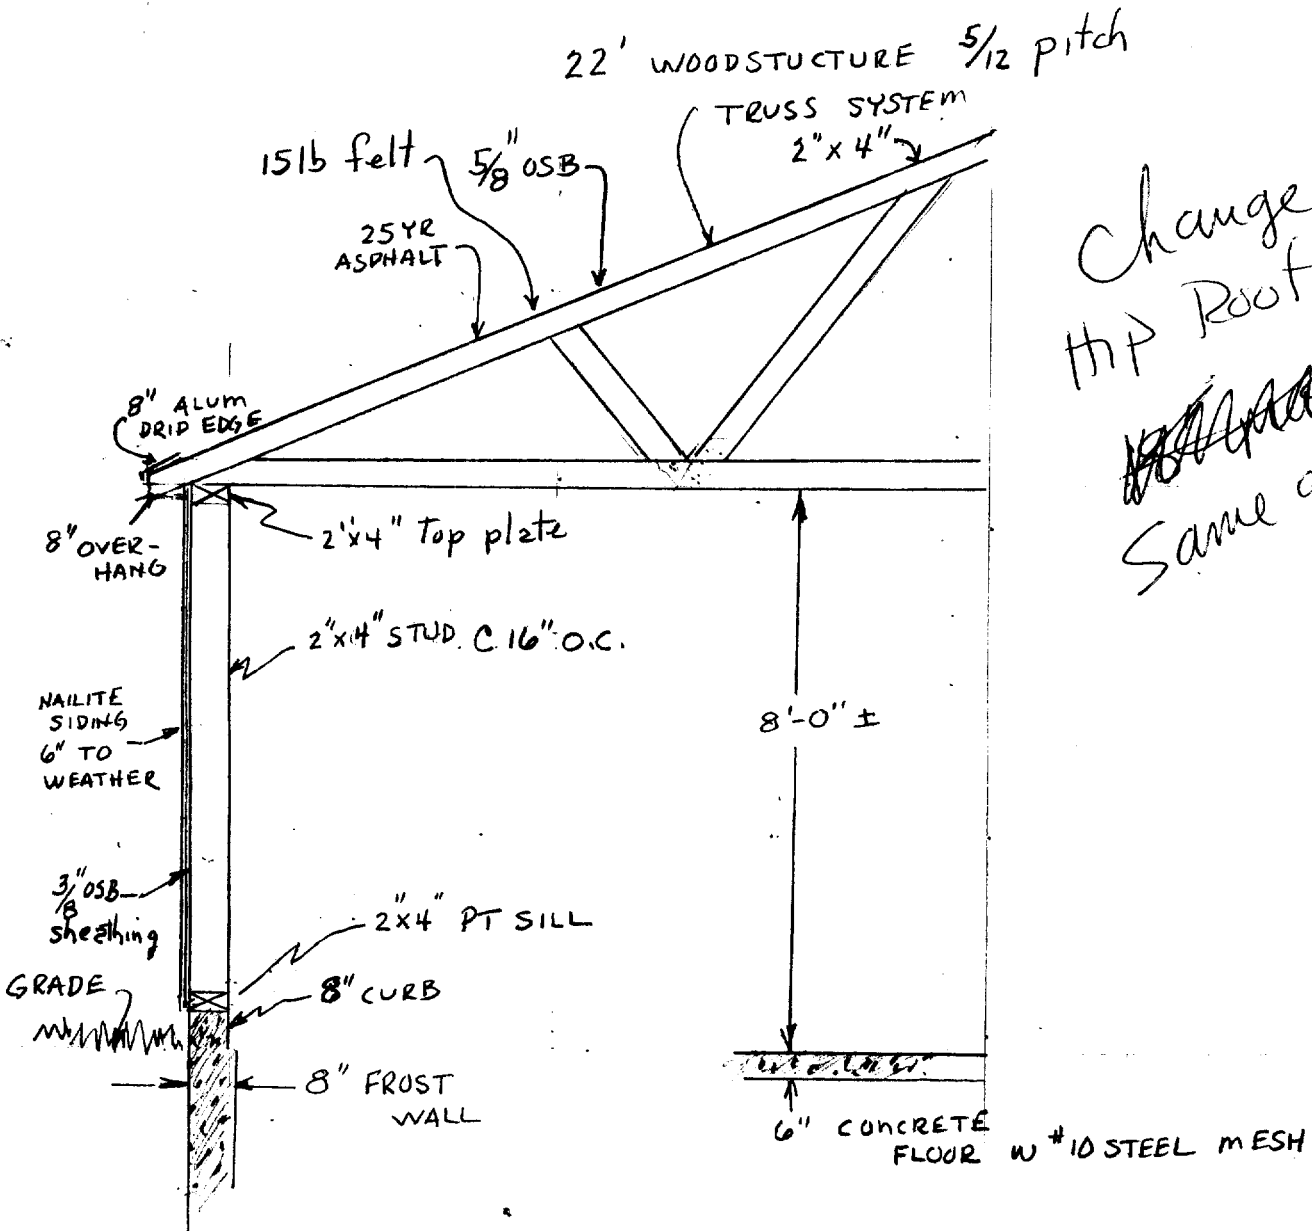 22' WOODSTUCTURE 5/12 pitch
TRUSS SYSTEM
2" x 4"
15lb felt
5/8" OSB
25 YR
ASPHALT
Change
Hip Roof
Same
8" ALUM
DRIP EDGE
8" OVER-
HANG
2"x4" Top plate
2"x4" STUD. C. 16" O.C.
NAILITE
SIDING
6" TO
WEATHER
8'-0" ±
3/8" OSB
sheathing
2"x4" PT SILL
GRADE
8" CURB
8" FROST
WALL
6" CONCRETE
FLOOR W #10 STEEL MESH